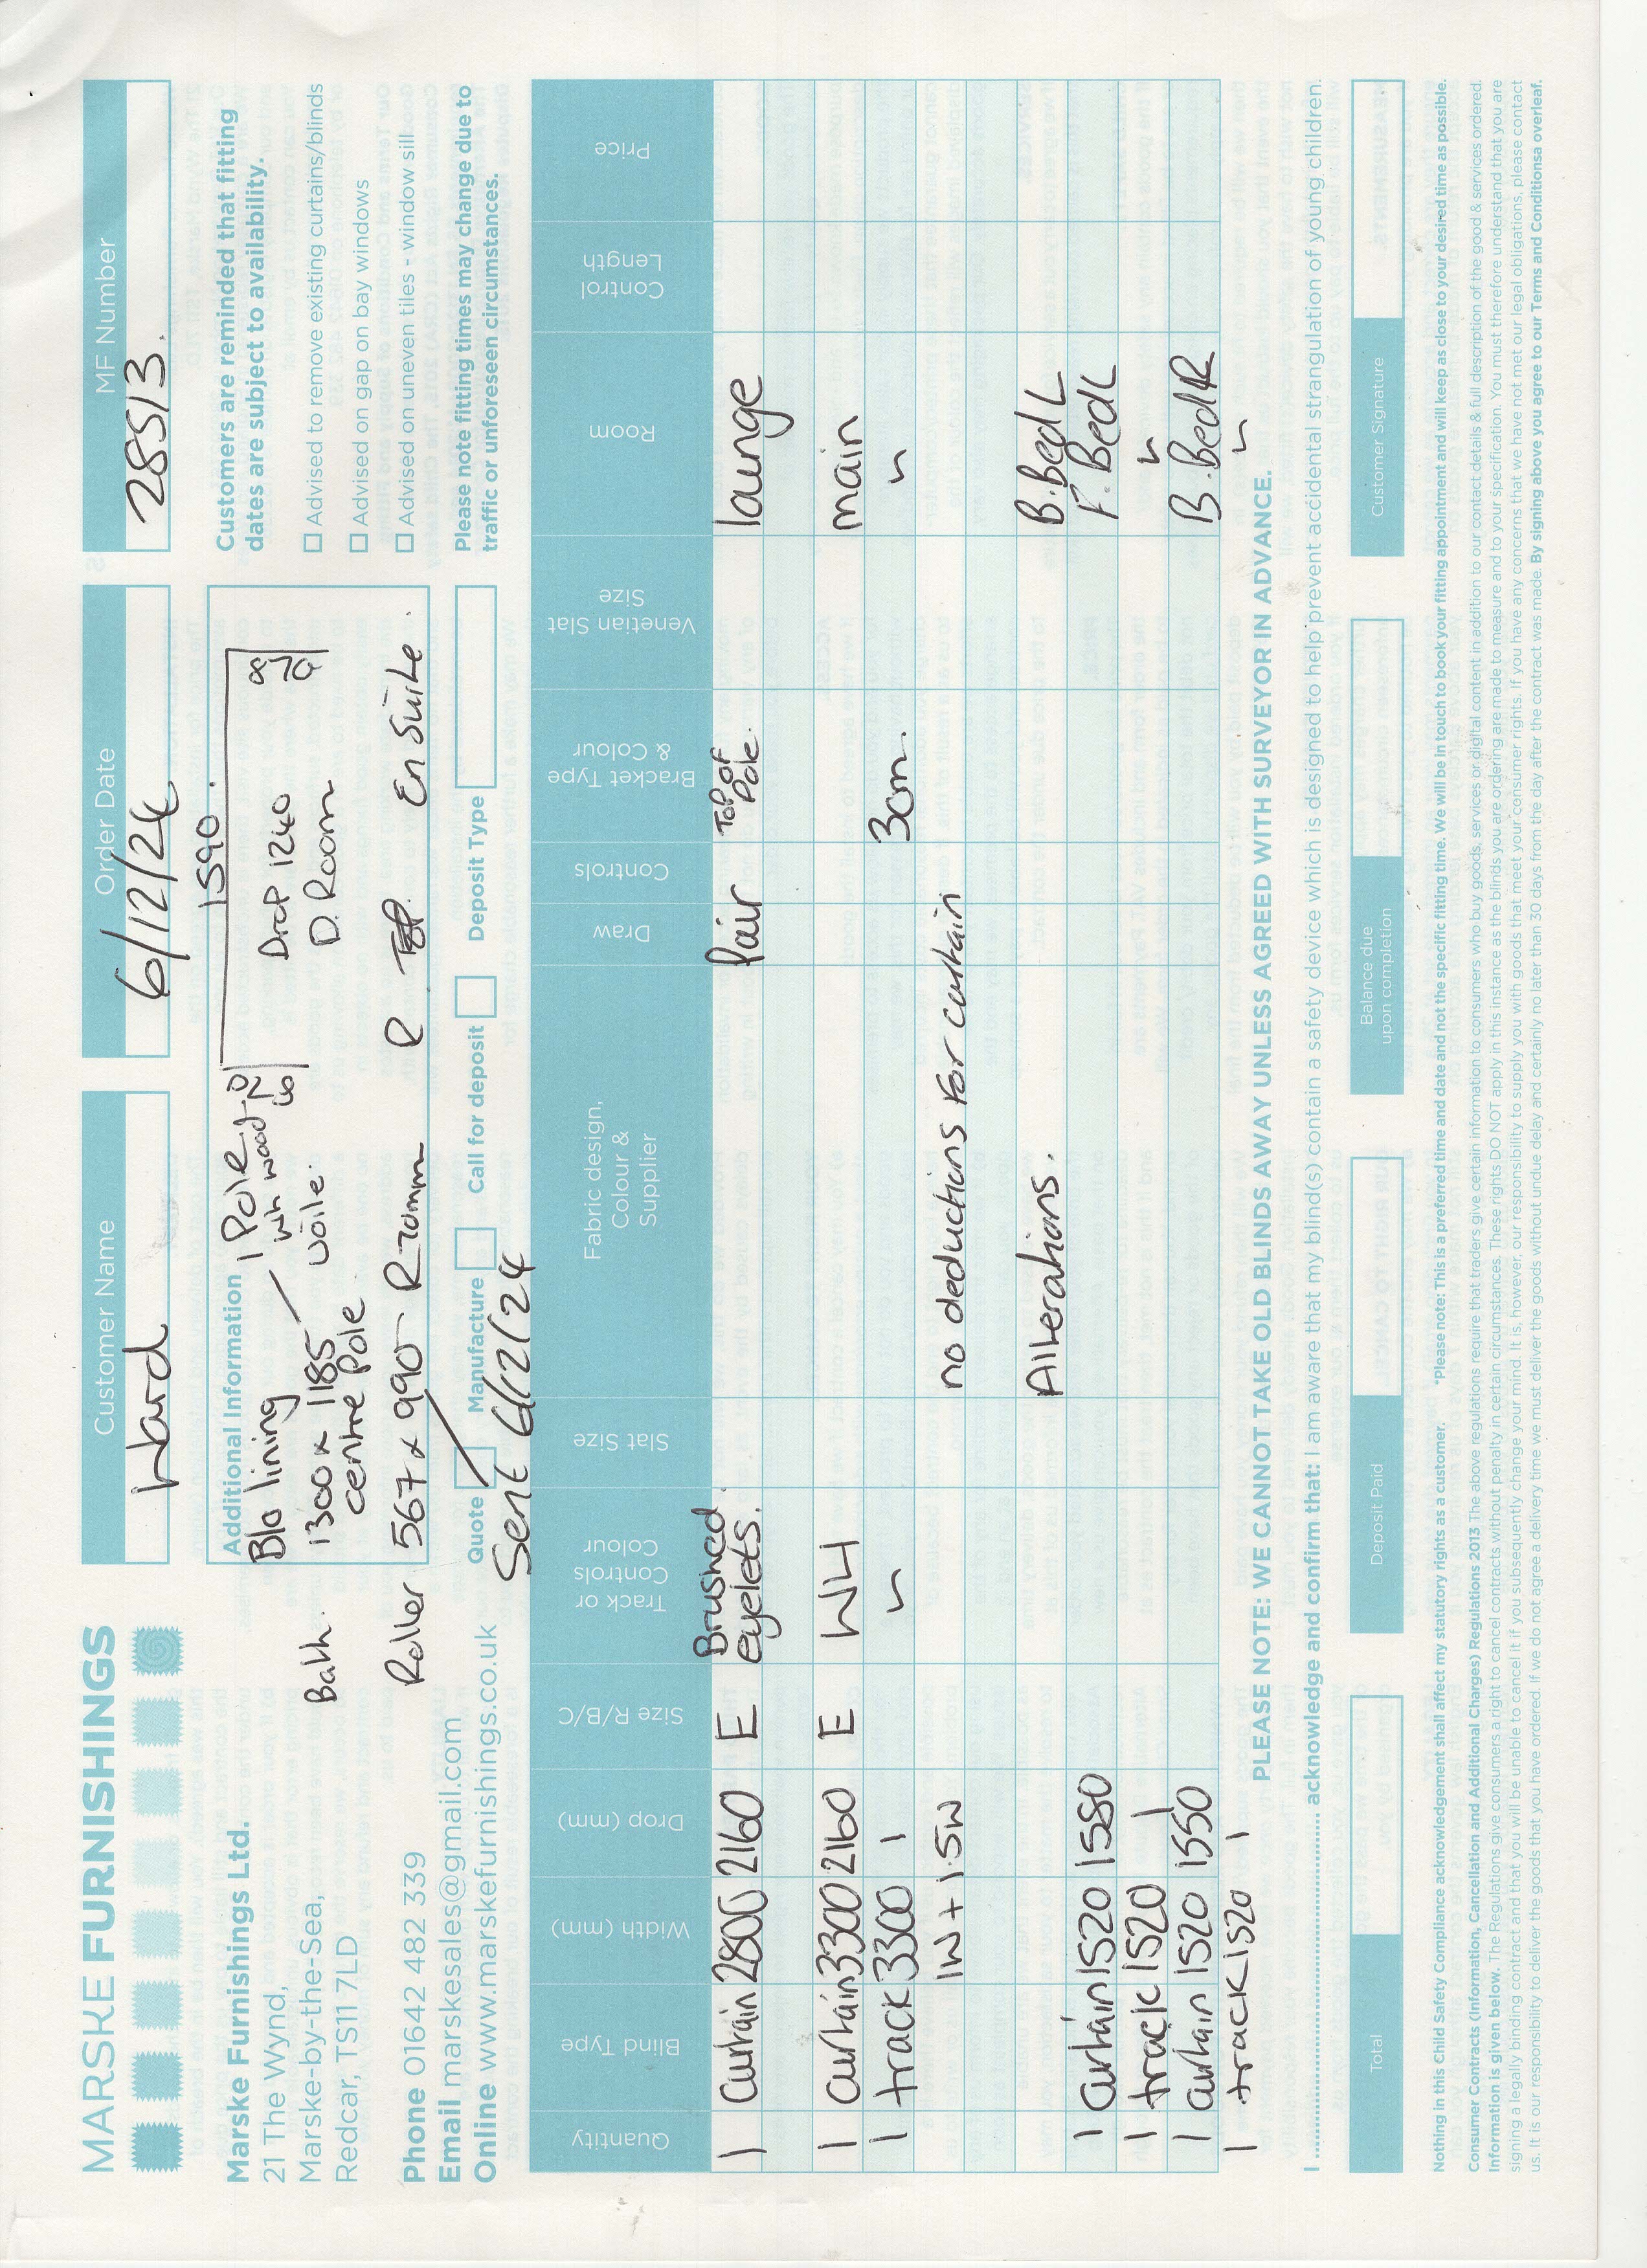 MARSKE FURNISHINGS
Marske Furnishings Ltd.
21 The Wynd,
Marske-by-the-Sea,
Redcar, TS11 7LD
Phone 01642 482 339
Email marskesales@gmail.com
Online www.marskefurnishings.co.uk
Customer Name
Ward
Order Date
6/12/24
MF Number
28513.
Additional Information
Blo lining
1 Pole
wh wood
1590.
Bath. 1300 x 1185 voile.
centre Pole.
Drop 1240
D. Room
Roller 567 x 990 R70mm R En Suite.
Quote Manufacture Call for deposit Deposit Type
Sent 6/12/24
Customers are reminded that fitting
dates are subject to availability.
Advised to remove existing curtains/blinds
Advised on gap on bay windows
Advised on uneven tiles - window sill
Please note fitting times may change due to
traffic or unforeseen circumstances.
Quantity Blind Type Width (mm) Drop (mm) Size R/B/C Track or Controls Colour Slat Size Fabric design, Colour & Supplier Draw Controls Bracket Type & Colour Venetian Slat Size Room Control Length Price
1 Curtain 2800 2160 E Brushed eyelets. Pair Top of Pole. lounge
1 Curtain 3300 2160 E WH main
1 track 3300 3cm.
1W + 1.5W no deductions for curtain
Alterations. B.Bed L
1 Curtain 1520 1580 F.Bed L
1 track 1520
1 Curtain 1520 1550 B.Bed R
1 track 1520
PLEASE NOTE: WE CANNOT TAKE OLD BLINDS AWAY UNLESS AGREED WITH SURVEYOR IN ADVANCE.
I .................... acknowledge and confirm that: I am aware that my blind(s) contain a safety device which is designed to help prevent accidental strangulation of young children.
Total Deposit Paid Balance due upon completion Customer Signature
Nothing in this Child Safety Compliance acknowledgement shall affect my statutory rights as a customer. *Please note: This is a preferred time and date and not the specific fitting time. We will be in touch to book your fitting appointment and will keep as close to your desired time as possible.
Consumer Contracts (Information, Cancellation and Additional Charges) Regulations 2013 The above regulations require that traders give certain information to consumers who buy goods, services or digital content in addition to our contact details & full description of the good & services ordered.
Information is given below. The Regulations give consumers a right to cancel contracts without penalty in certain circumstances. These rights DO NOT apply in this instance as the blinds you are ordering are made to measure and to your specification. You must therefore understand that you are
signing a legally binding contract and that you will be unable to cancel it if you subsequently change your mind. It is, however, our responsibility to supply you with goods that meet your consumer rights. If you have any concerns that we have not met our legal obligations, please contact
us. It is our responsibility to deliver the goods that you have ordered. If we do not agree a delivery time we must deliver the goods without undue delay and certainly no later than 30 days from the day after the contract was made. By signing above you agree to our Terms and Conditionsa overleaf.